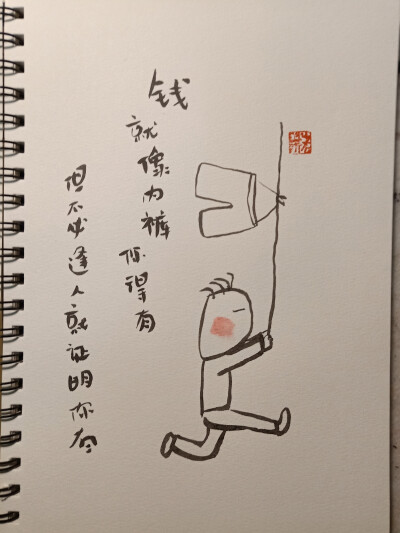 钱
就像内裤你得有
但不必逢人就证明你有